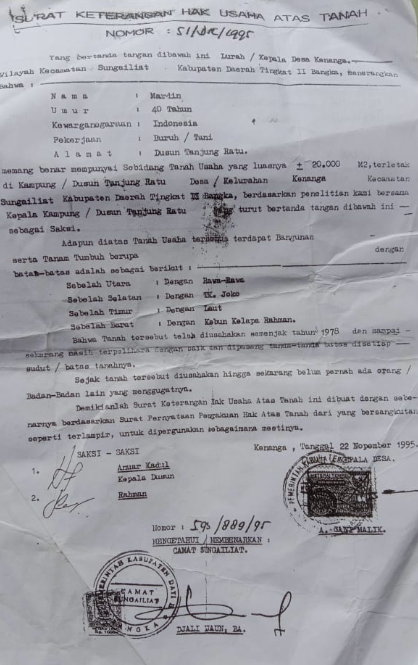 SURAT KETERANGAN HAK USAHA ATAS TANAH
NOMOR : 51/DK/1995
Yang bertanda tangan dibawah ini Lurah / Kepala Desa Kenanga.
Wilayah Kecamatan Sungailiat Kabupaten Daerah Tingkat II Bangka, Menerangkan
Bahwa :
N a m a : Mardin
U m u r : 40 Tahun
Kewarganegaraan : Indonesia
Pekerjaan : Buruh / Tani
A l a m a t : Dusun Tanjung Ratu.
memang benar mempunyai Sebidang Tanah Usaha yang luasnya ± 20.000 M2, terletak
di Kampung / Dusun Tanjung Ratu Desa / Kelurahan Kenanga Kecamatan
Sungailiat Kabupaten Daerah Tingkat II Bangka, berdasarkan penelitian kami bersama
Kepala Kampung / Dusun Tanjung Ratu yang turut bertanda tangan dibawah ini —
sebagai Saksi.
Adapun diatas Tanah Usaha tersebut terdapat Bangunan -
serta Tanam Tumbuh berupa dengan
batas-batas adalah sebagai berikut :
Sebelah Utara : Dengan Rawa-Rawa
Sebelah Selatan : Dengan TK. Joko
Sebelah Timur : Dengan Laut
Sebelah Barat : Dengan Kebun Kelapa Rahman.
Bahwa Tanah tersebut telah diusahakan sesenjak tahun 1978 dan sampai -
sekarang masih terpelihara dengan baik dan dipasang tanda-tanda batas disetiap —
sudut / batas tanahnya.
Sejak tanah tersebut diusahakan hingga sekarang belum pernah ada orang /
Badan-Badan lain yang menggugatnya.
Demikianlah Surat Keterangan Hak Usaha Atas Tanah ini dibuat dengan sebe-
narnya berdasarkan Surat Pernyataan Pengakuan Hak Atas Tanah dari yang bersangkutan
seperti terlampir, untuk dipergunakan sebagaimana mestinya.
Kenanga, Tanggal 22 Nopember 1995.
SAKSI - SAKSI
KEPALA DESA.
1. Anuar Kadul
Kepala Dusun
2. Rahman
A. GANI MALIK.
Nomor : 595/889/95
MENGETAHUI / MEMBENARKAN :
CAMAT SUNGAILIAT.
PEMERINTAH KABUPATEN DATI II
CAMAT
SUNGAILIAT
BANGKA
DJALI UAUN, BA.